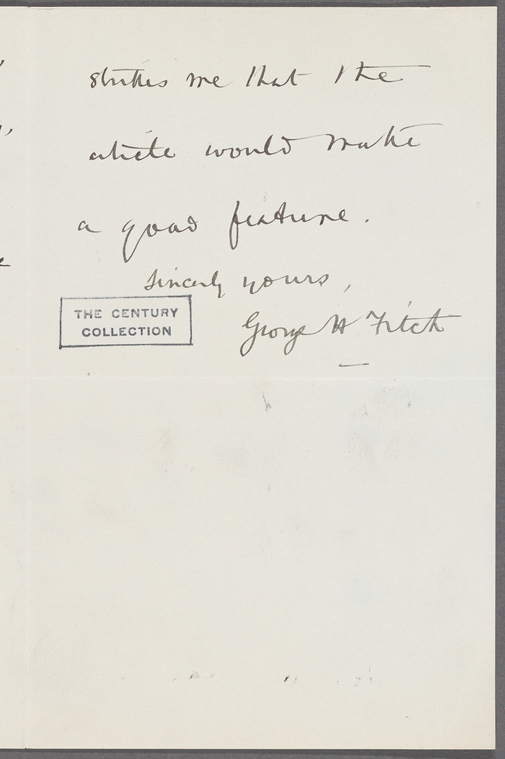 strikes me that the
article would make
a good feature.
Sincerely yours,
THE CENTURY
COLLECTION
George H Fitch